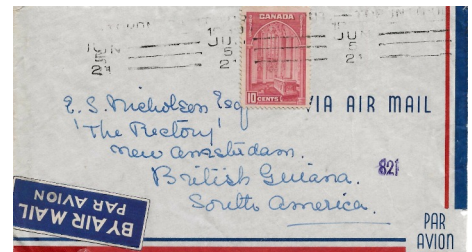 CANADA
10 CENTS
JU
5
21
JUN
5
21
VIA AIR MAIL
E. S. Nicholson Esq
'The Rectory'
New Amsterdam.
British Guiana.
South America.
821
BY AIR MAIL
PAR AVION
PAR
AVION